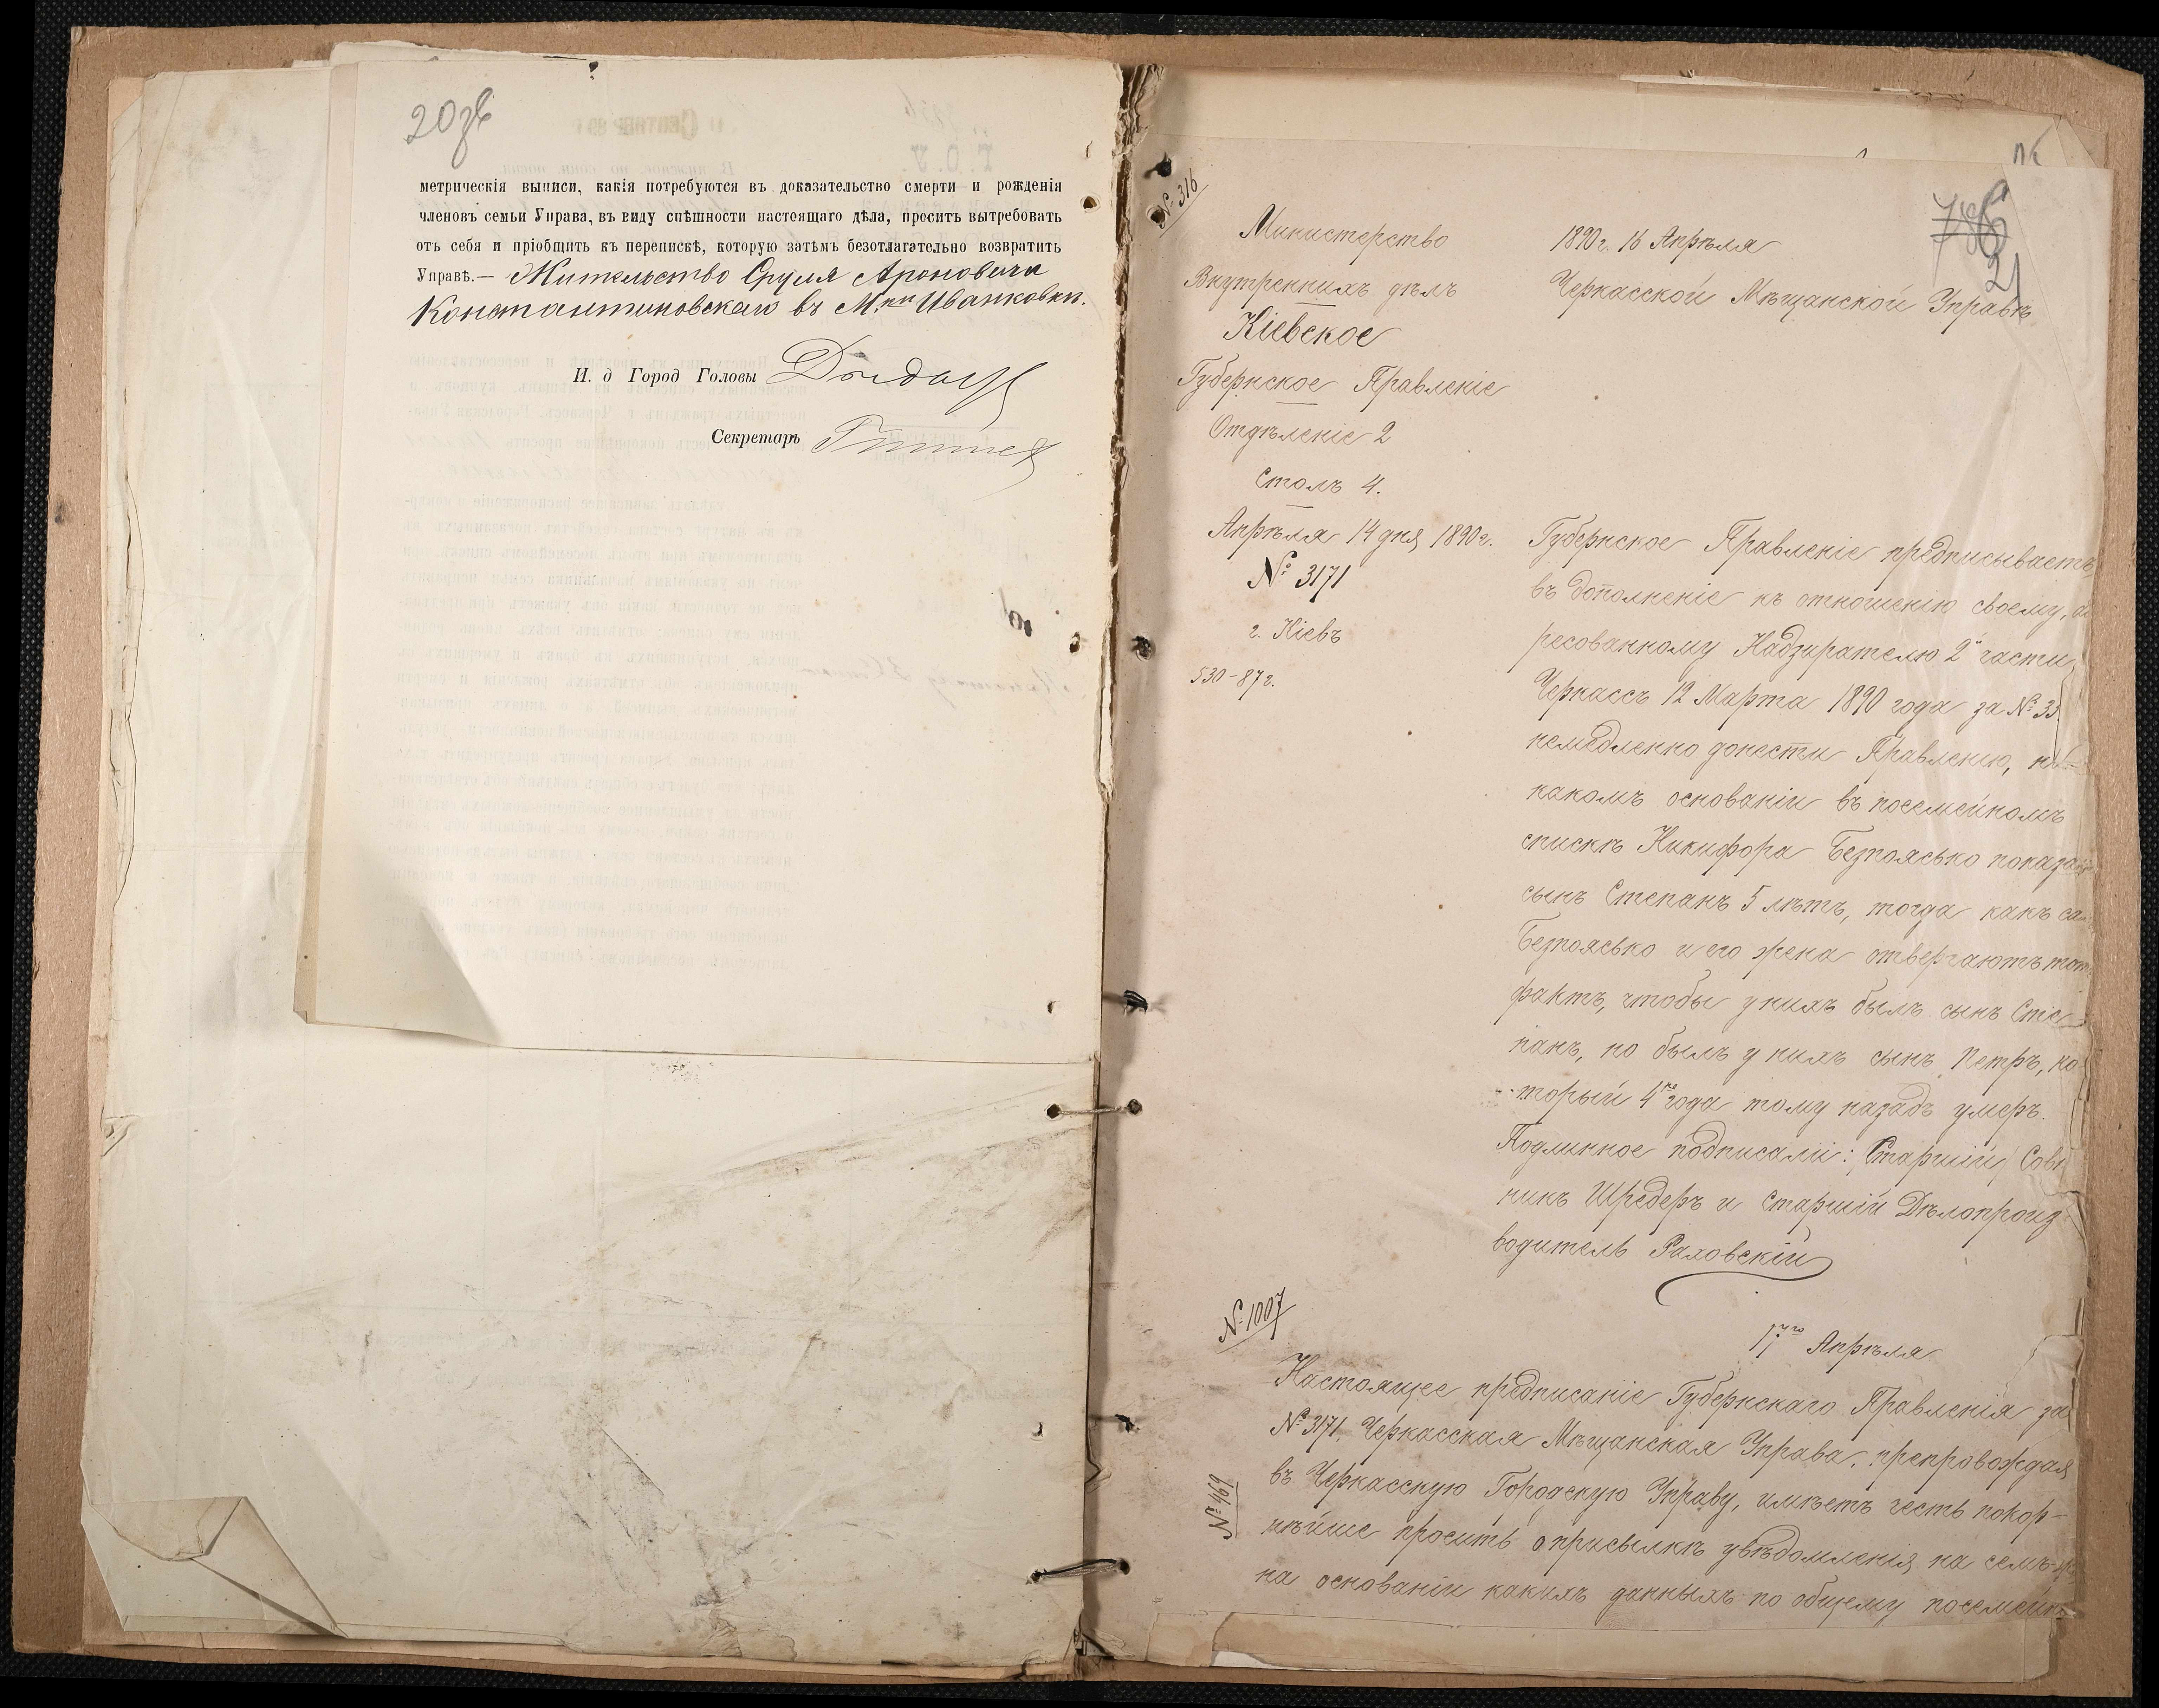 20зв
метрическія выписи, какія потребуются въ доказательство смерти и рожденія
членовъ семьи Управа, въ виду спѣшности настоящаго дѣла, проситъ вытребовать
отъ себя и пріобщить къ перепискѣ, которую затѣмъ безотлагательно возвратить
Управѣ.— Жительство Сруля Ароновича
Константиновскаго въ М.кѣ Иванковкѣ.
И. д Город Головы
Секретарь
№ 316
21
Министерство
Внутреннихъ дѣлъ
Кіевское
Губернское Правленіе
Отдѣленіе 2
Столъ 4.
Апрѣля 14 дня 1890 г.
№ 3171
г. Кіевъ
530-87 г.
1890 г. 16 Апрѣля
Черкасской Мѣщанской Управѣ
Губернское Правленіе предписываетъ
въ дополненіе къ отношенію своему,
ресованному Надзирателю 2й части
Черкассъ 12 Марта 1890 года за №
немедленно донести Правленію, на
какомъ основаніи въ посемейномъ
спискѣ Никифора Безпоясько показанъ
сынъ Степанъ 5 лѣтъ, тогда какъ
Безпоясько и его жена отвергаютъ
фактъ, чтобы у нихъ былъ сынъ Сте-
панъ, но былъ у нихъ сынъ Петръ, ко
торый 4 года тому назадъ умеръ.
Подлинное подписали: Старшій Совѣ
никъ Шредеръ и Старшій Дѣлопроиз
водитель Раховскій
№ 1007
17го Апрѣля
Настоящее предписаніе Губернскаго Правленія за
№ 3171, Черкасская Мѣщанская Управа, препровождая
въ Черкасскую Городскую Управу, имѣетъ честь покор-
нѣйше просить о присылкѣ увѣдомленія на семъ-же
на основаніи какихъ данныхъ по общему посемейн
№ 469